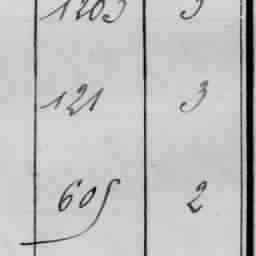 1203 3
121 3
605 2